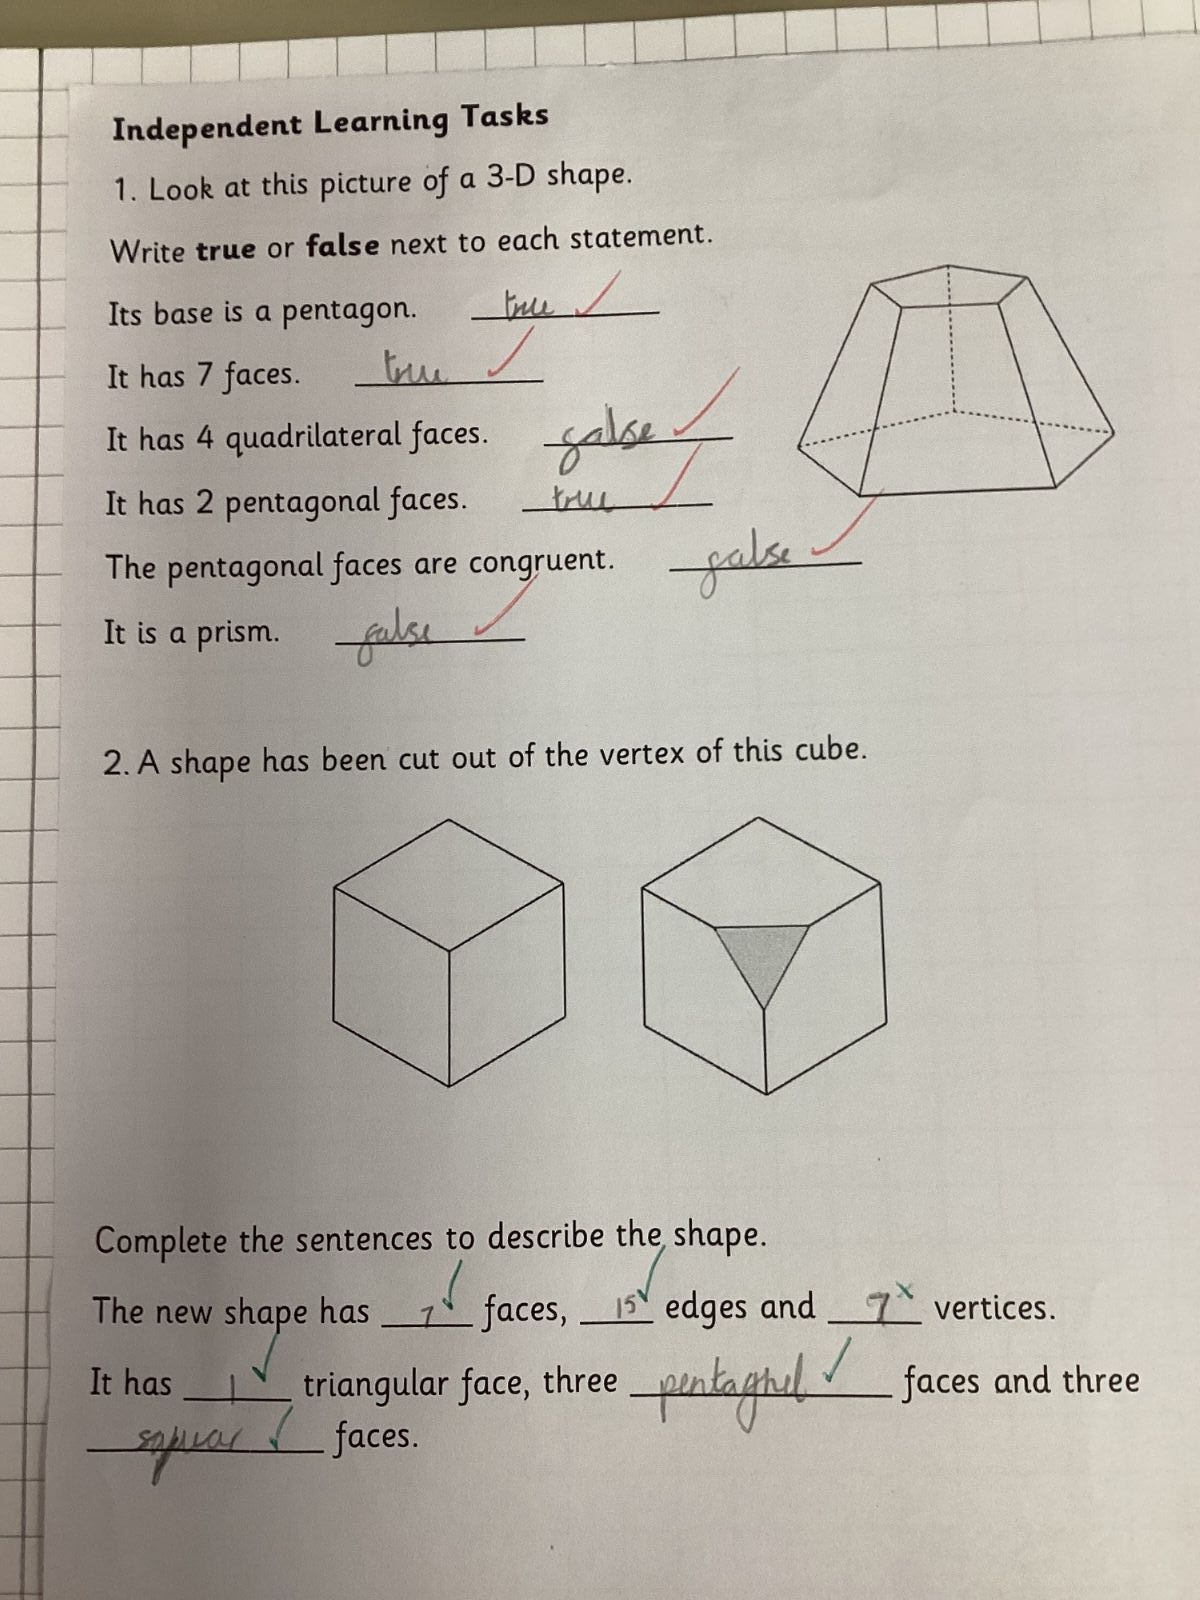 Independent Learning Tasks
1. Look at this picture of a 3-D shape.
Write true or false next to each statement.
Its base is a pentagon. true
It has 7 faces. true
It has 4 quadrilateral faces. false
It has 2 pentagonal faces. true
The pentagonal faces are congruent. false
It is a prism. false
2. A shape has been cut out of the vertex of this cube.
Complete the sentences to describe the shape.
The new shape has 7 faces, 15 edges and 7 vertices.
It has 1 triangular face, three pentaghel faces and three
squar faces.